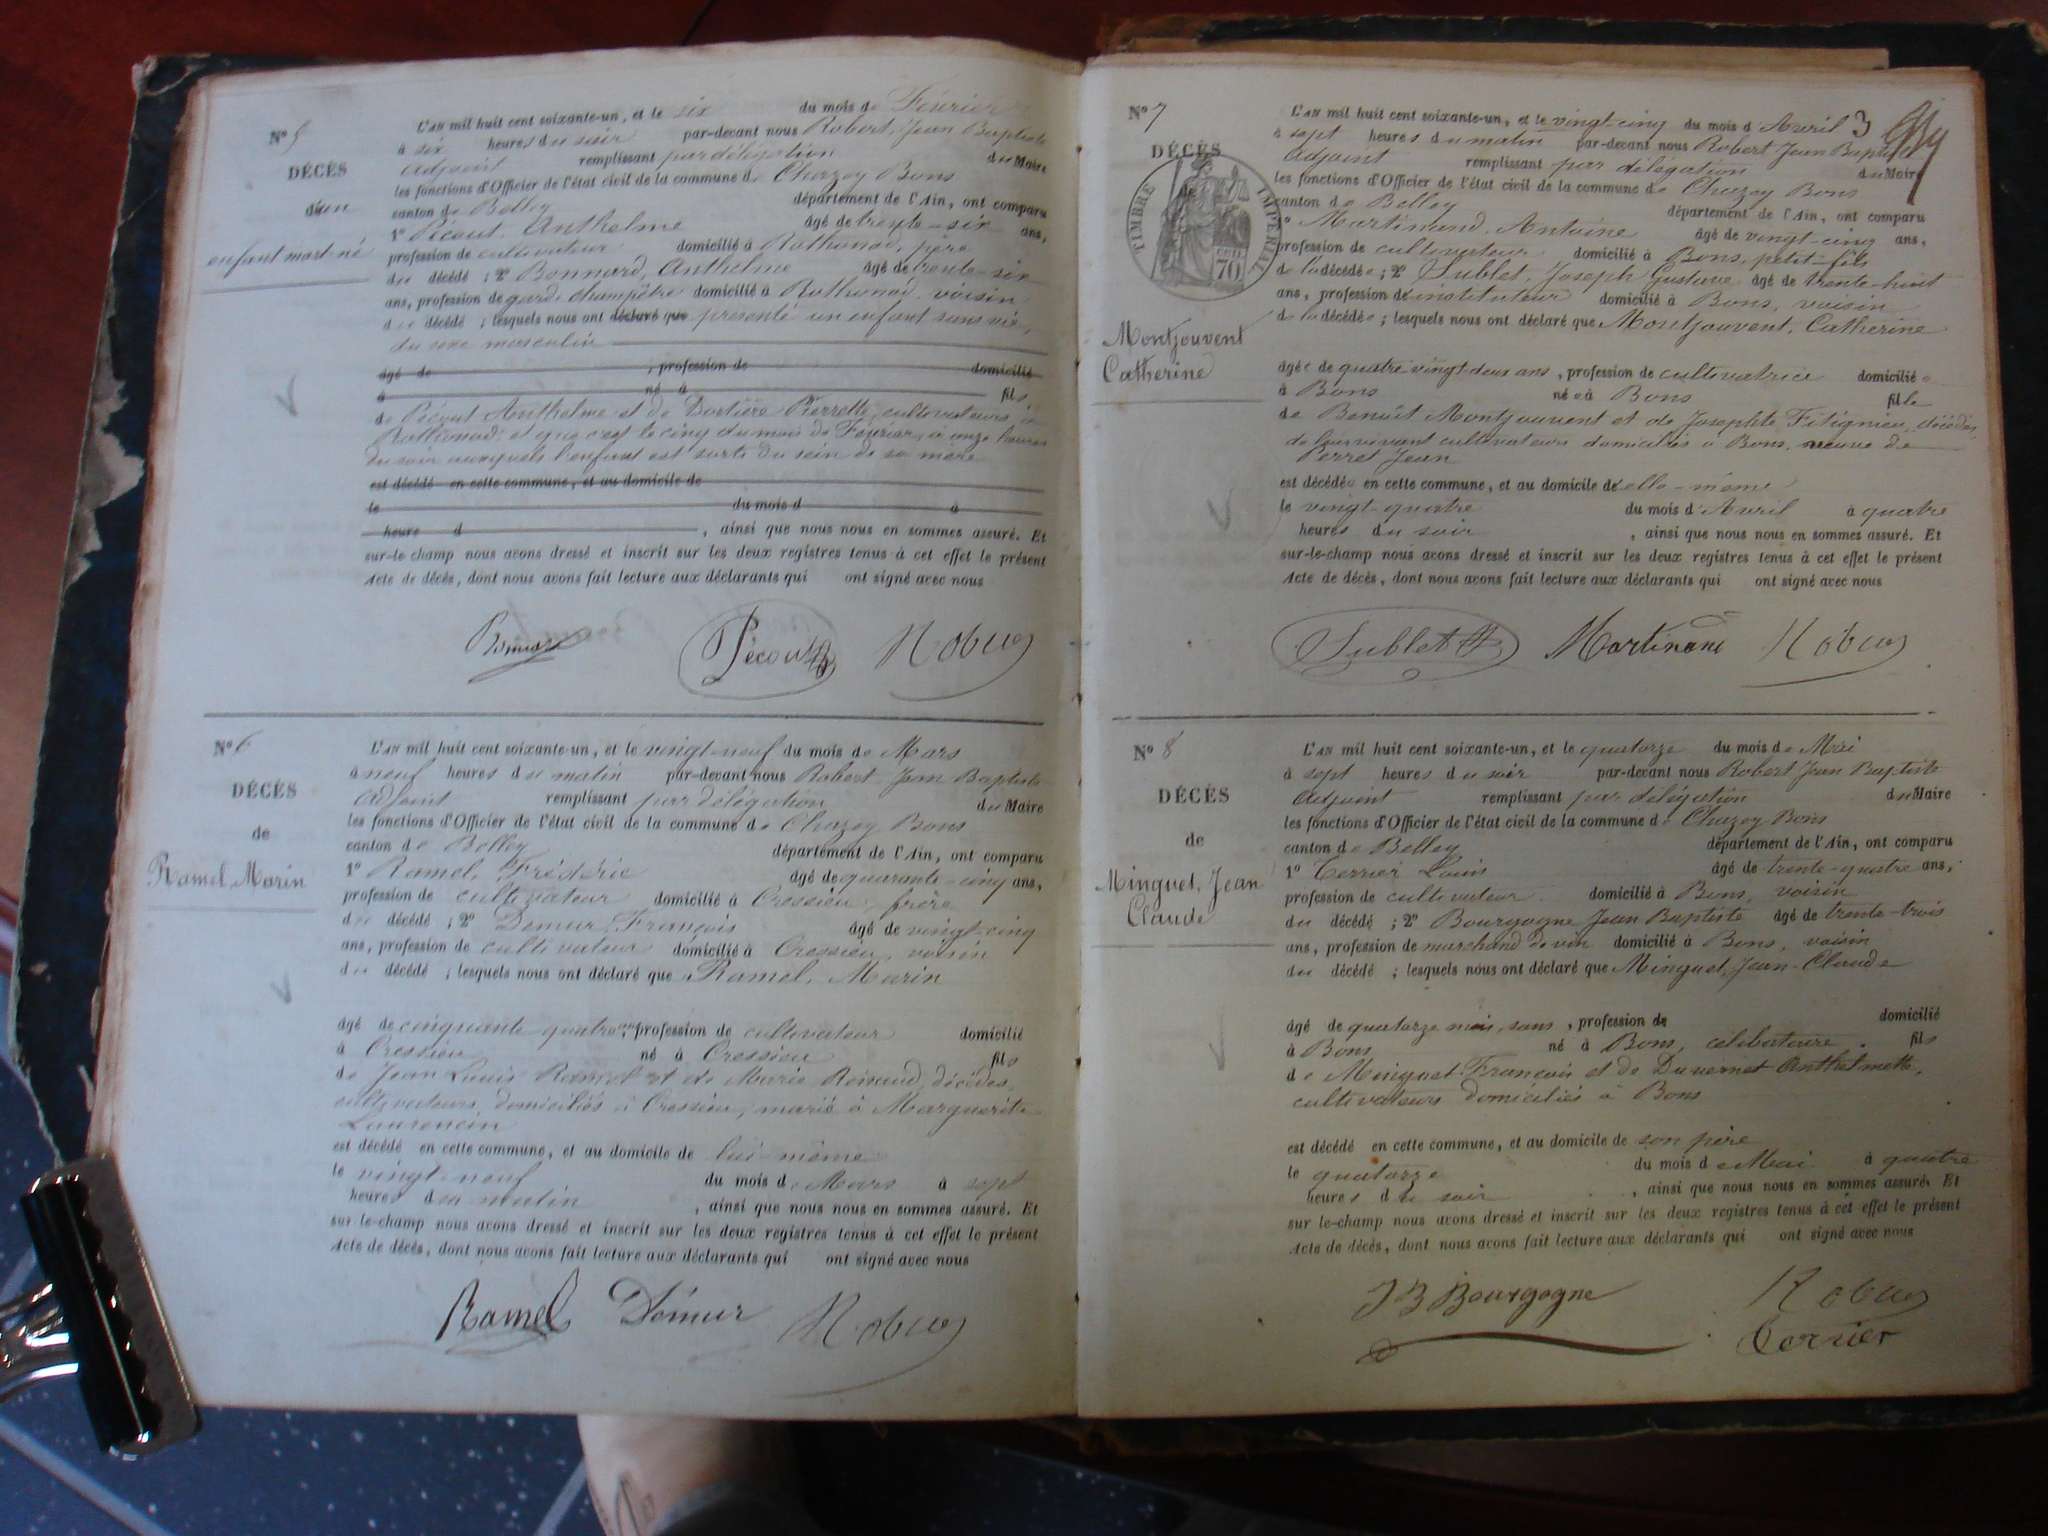 N° 5
DÉCÈS
d'un
enfant mort-né
L'AN mil huit cent soixante-un, et le six du mois de Février
à six heures du soir par-devant nous Robert, Jean Baptiste
adjoint remplissant par délégation du Maire
les fonctions d'Officier de l'état civil de la commune de Chazey Bons
canton de Belley département de l'Ain, ont comparu
1° Pécout, Anthelme âgé de trente-six ans,
profession de cultivateur domicilié à Rothonod, père
du décédé ; 2° Bonnard, Anthelme âgé de trente-six
ans, profession de garde champêtre domicilié à Rothonod, voisin
du décédé ; lesquels nous ont déclaré que présenté un enfant sans vie,
du sexe masculin
âgé de , profession de domicilié
à né à fils
de Pécout Anthelme et de Dortière Pierrette, cultivateurs à
Rothonod; et que c'est le cinq du mois de Février, à onze heures
du soir auxquels l'enfant est sorti du sein de sa mère
est décédé en cette commune, et au domicile de
le du mois d à
heure d , ainsi que nous nous en sommes assuré. Et
sur-le-champ nous avons dressé et inscrit sur les deux registres tenus à cet effet le présent
Acte de décès, dont nous avons fait lecture aux déclarants qui ont signé avec nous
Bonnard Pécout Robert
N° 6
DÉCÈS
de
Ramel Marin
L'AN mil huit cent soixante-un, et le vingt-neuf du mois de Mars
à neuf heures du matin par-devant nous Robert Jean Baptiste
adjoint remplissant par délégation du Maire
les fonctions d'Officier de l'état civil de la commune de Chazey Bons
canton de Belley département de l'Ain, ont comparu
1° Ramel, Fréderic âgé de quarante-cinq ans,
profession de cultivateur domicilié à Cressieu, frère
du décédé ; 2° Demur, François âgé de vingt-cinq
ans, profession de cultivateur domicilié à Cressieu, voisin
du décédé ; lesquels nous ont déclaré que Ramel, Marin
âgé de cinquante quatre ans, profession de cultivateur domicilié
à Cressieu né à Cressieu fils
de Jean Louis Ramel et de Marie Reinaud, décédés,
cultivateurs, domiciliés à Cressieu, marié à Marguerite
Laurencin
est décédé en cette commune, et au domicile de lui-même
le vingt-neuf du mois de Mars à sept
heures du matin , ainsi que nous nous en sommes assuré. Et
sur-le-champ nous avons dressé et inscrit sur les deux registres tenus à cet effet le présent
Acte de décès, dont nous avons fait lecture aux déclarants qui ont signé avec nous
Ramel Démur Robert
N° 7
DÉCÈS
de
TIMBRE IMPÉRIAL
70
Montjouvent
Catherine
3
L'AN mil huit cent soixante-un, et le vingt-cinq du mois d'Avril
à sept heures du matin par-devant nous Robert Jean Baptiste
adjoint remplissant par délégation du Maire
les fonctions d'Officier de l'état civil de la commune de Chazey Bons
canton de Belley département de l'Ain, ont comparu
1° Martinand, Antoine âgé de vingt-cinq ans,
profession de cultivateur domicilié à Bons, petit-fils
de la décédée ; 2° Sublet, Joseph Gustave âgé de trente-huit
ans, profession de instituteur domicilié à Bons, voisin
de la décédée ; lesquels nous ont déclaré que Montjouvent, Catherine
âgée de quatre vingt deux ans, profession de cultivatrice domiciliée
à Bons née à Bons fille
de Benoît Montjouvent et de Josephte Fitignieu, décédés,
de leur vivant cultivateurs domiciliés à Bons, veuve de
Perret Jean
est décédée en cette commune, et au domicile d'elle-même
le vingt-quatre du mois d'Avril à quatre
heures du soir , ainsi que nous nous en sommes assuré. Et
sur-le-champ nous avons dressé et inscrit sur les deux registres tenus à cet effet le présent
Acte de décès, dont nous avons fait lecture aux déclarants qui ont signé avec nous
Sublet Martinand Robert
N° 8
DÉCÈS
de
Minguet, Jean
Claude
L'AN mil huit cent soixante-un, et le quatorze du mois de Mai
à sept heures du soir par-devant nous Robert Jean Baptiste
adjoint remplissant par délégation du Maire
les fonctions d'Officier de l'état civil de la commune de Chazey-Bons
canton de Belley département de l'Ain, ont comparu
1° Terrier Louis âgé de trente-quatre ans,
profession de cultivateur domicilié à Bons, voisin
du décédé ; 2° Bourgogne Jean Baptiste âgé de trente-trois
ans, profession de marchand de vin domicilié à Bons, voisin
du décédé ; lesquels nous ont déclaré que Minguet, Jean-Claude
âgé de quatorze mois, sans , profession de domicilié
à Bons né à Bons, célibataire fils
de Minguet François et de Duvernet Anthelmette,
cultivateurs domiciliés à Bons
est décédé en cette commune, et au domicile de son père
le quatorze du mois de Mai à quatre
heures du soir , ainsi que nous nous en sommes assuré. Et
sur le-champ nous avons dressé et inscrit sur les deux registres tenus à cet effet le présent
Acte de décès, dont nous avons fait lecture aux déclarants qui ont signé avec nous
J B Bourgogne Robert
Terrier